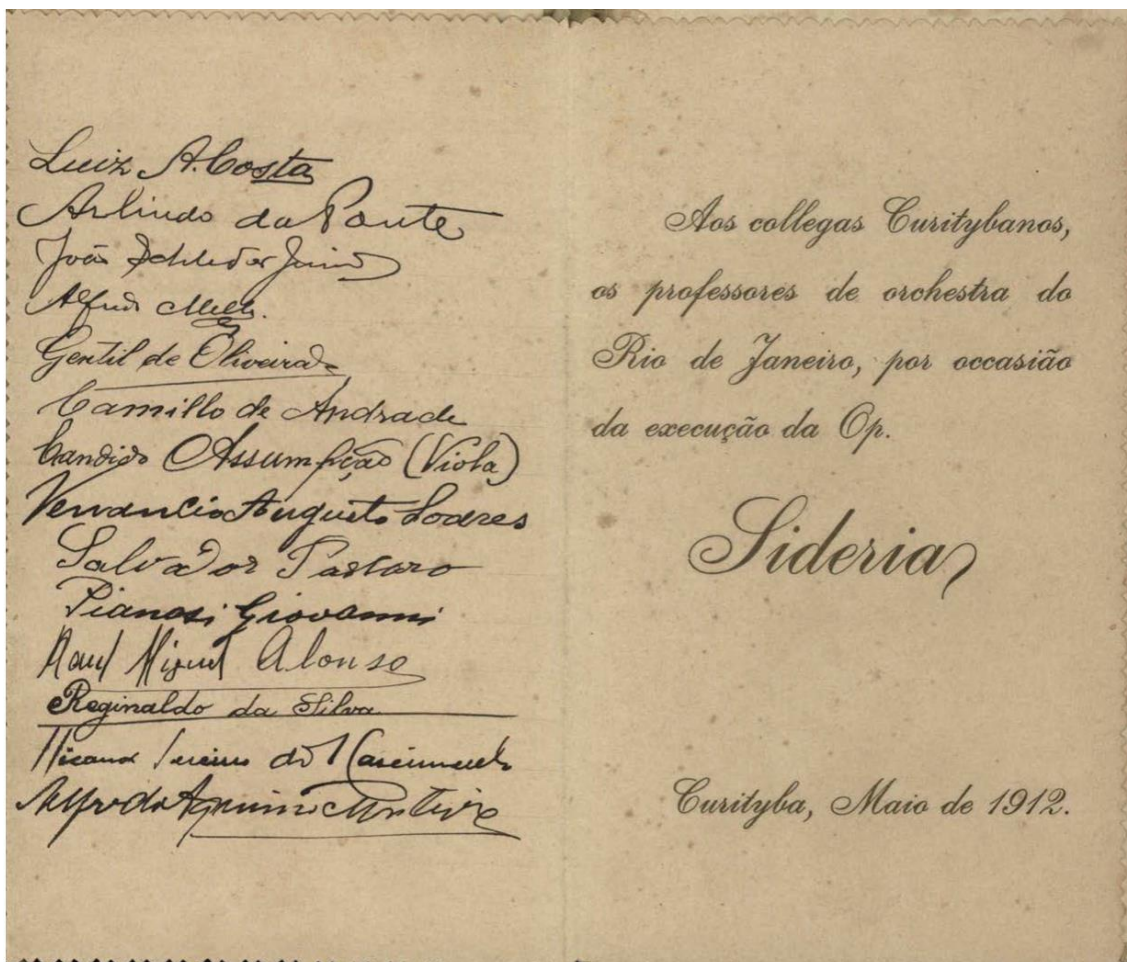 Luiz A. Costa
Arlindo da Ponte
João
Alfredo Mello.
Gentil de Oliveira
Camillo de Andrade
Candido Assumpção (Viola)
Venancio Augusto Soares
Salvador
Pianasi Giovanni
Raul Miguel Alonso
Reginaldo da Silva
do Nascimento
Alfredo Monteiro
Aos collegas Curitybanos,
os professores de orchestra do
Rio de Janeiro, por occasião
da execução da Op.
Sideria
Curityba, Maio de 1912.